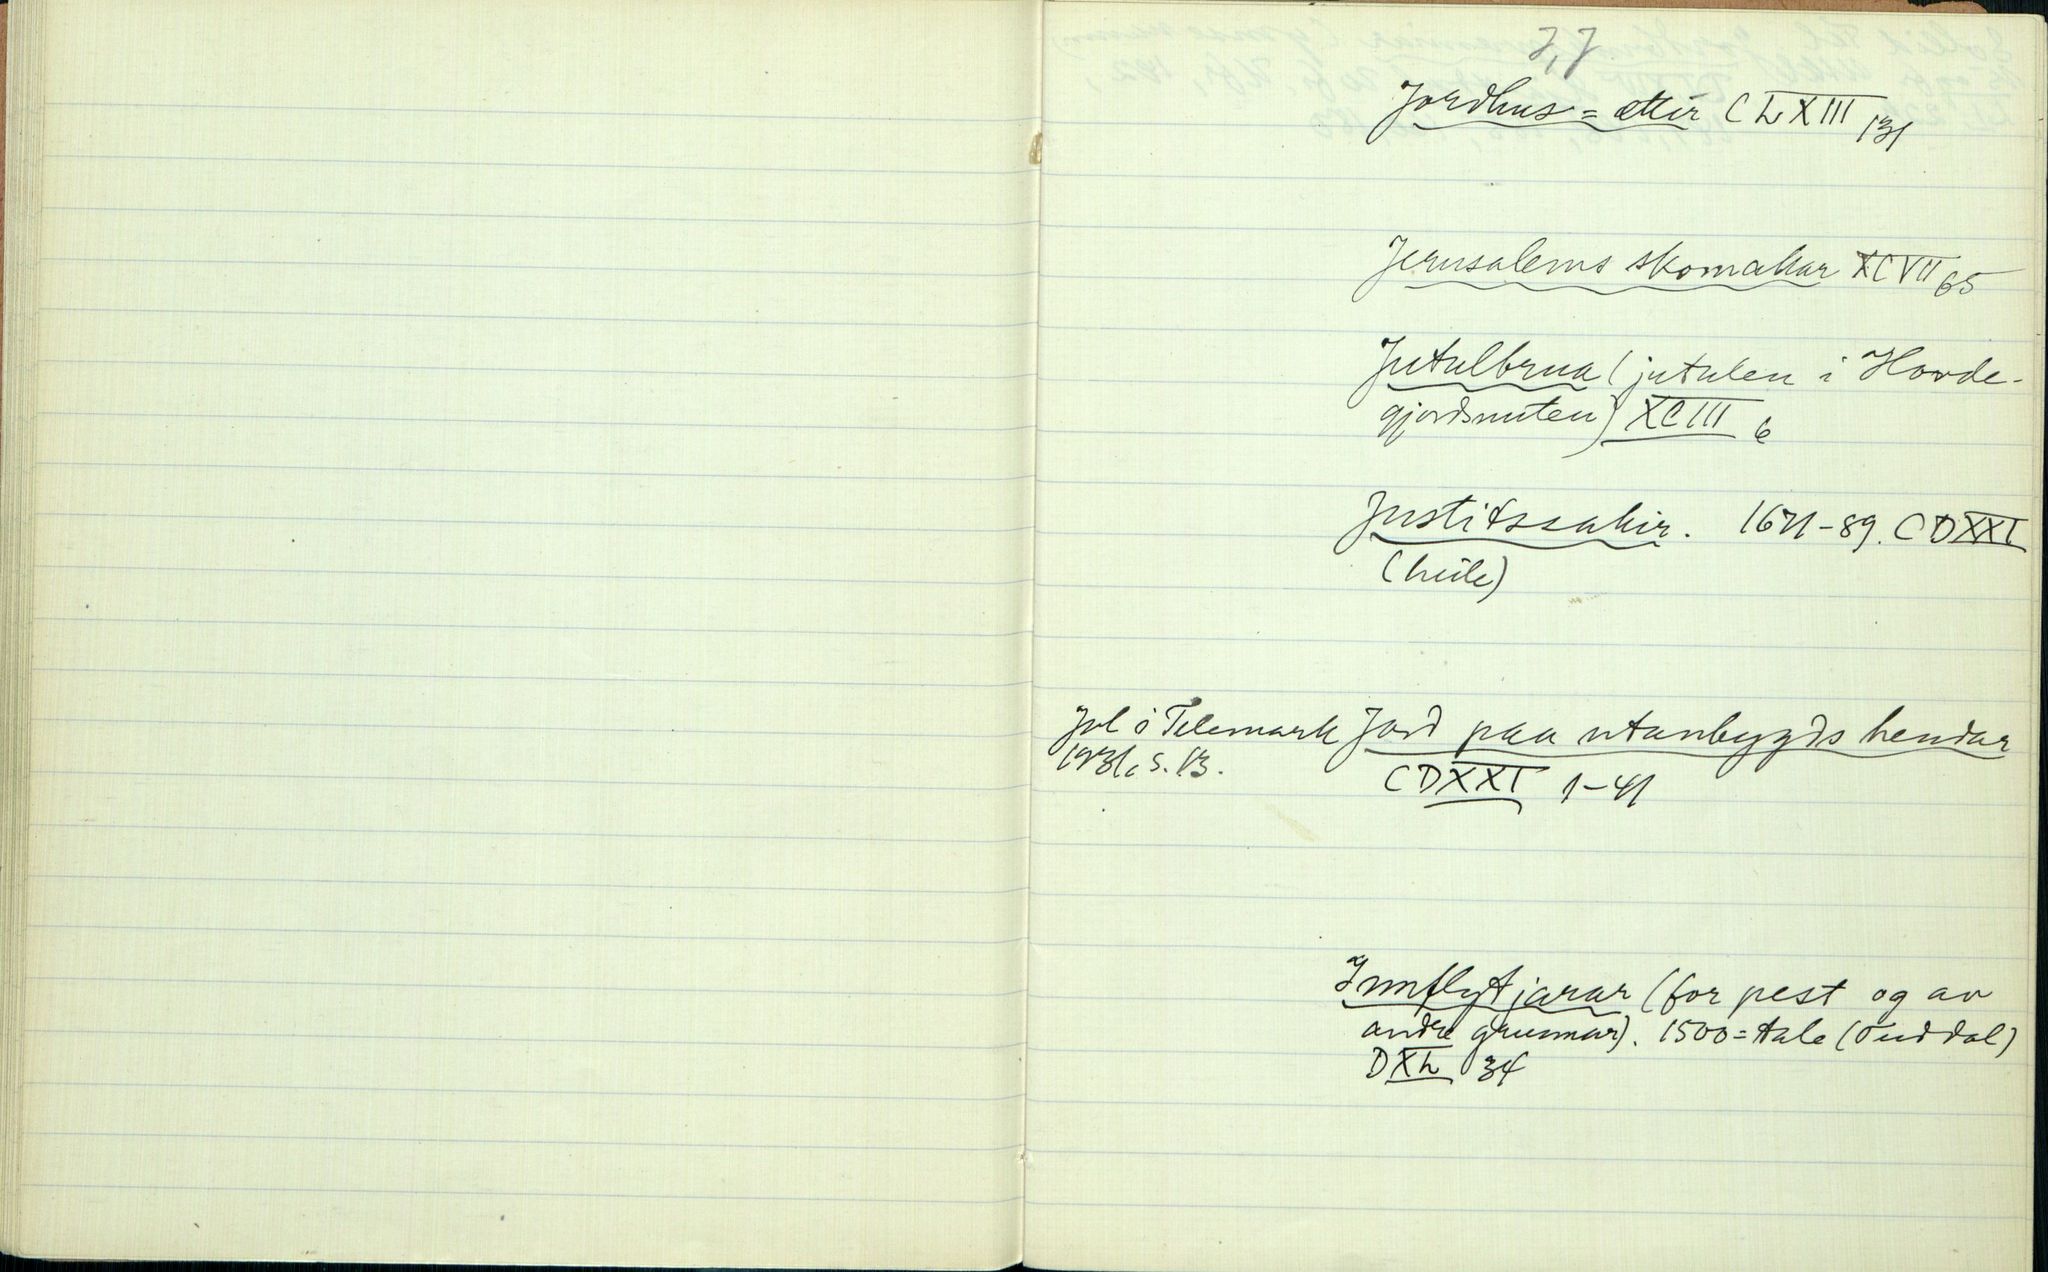 I, J
Jordhus = ættir CLXIII 131
Jerusalems skomakar XCVII 65
Jutulbrua (jutulen i Hovde-
gjordsnuten) XCIII 6
Justitssakir. 1671-89. CDXXI
(heile)
Jol i Telemark Jord paa utanbygds hendar
1931, s. 13.
CDXXI 1-41
Innflytjarar (for pest og av
andre grunnar). 1500 = tale (Tuddal)
DXL 34